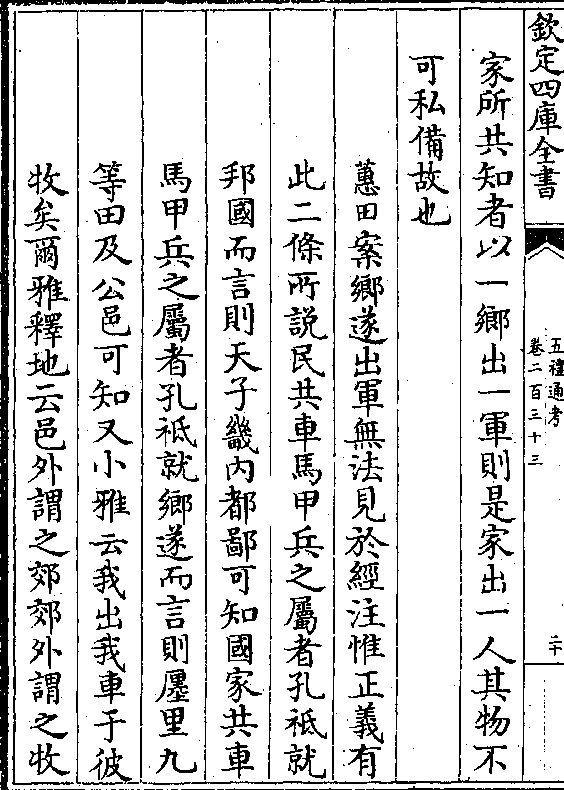 欽定四庫全書
五禮通考
卷二百三十三
二十
家所共知者以一鄉出一軍則是家出一人其物不
可私備故也
蕙田案鄉遂出軍無法見於經注惟正義有
此二條所説民共車馬甲兵之屬者孔祗就
邦國而言則天子畿内都鄙可知國家共車
馬甲兵之屬者孔祗就鄉遂而言則㕓里九
等田及公邑可知又小雅云我出我車于彼
牧矣爾雅釋地云邑外謂之郊郊外謂之牧